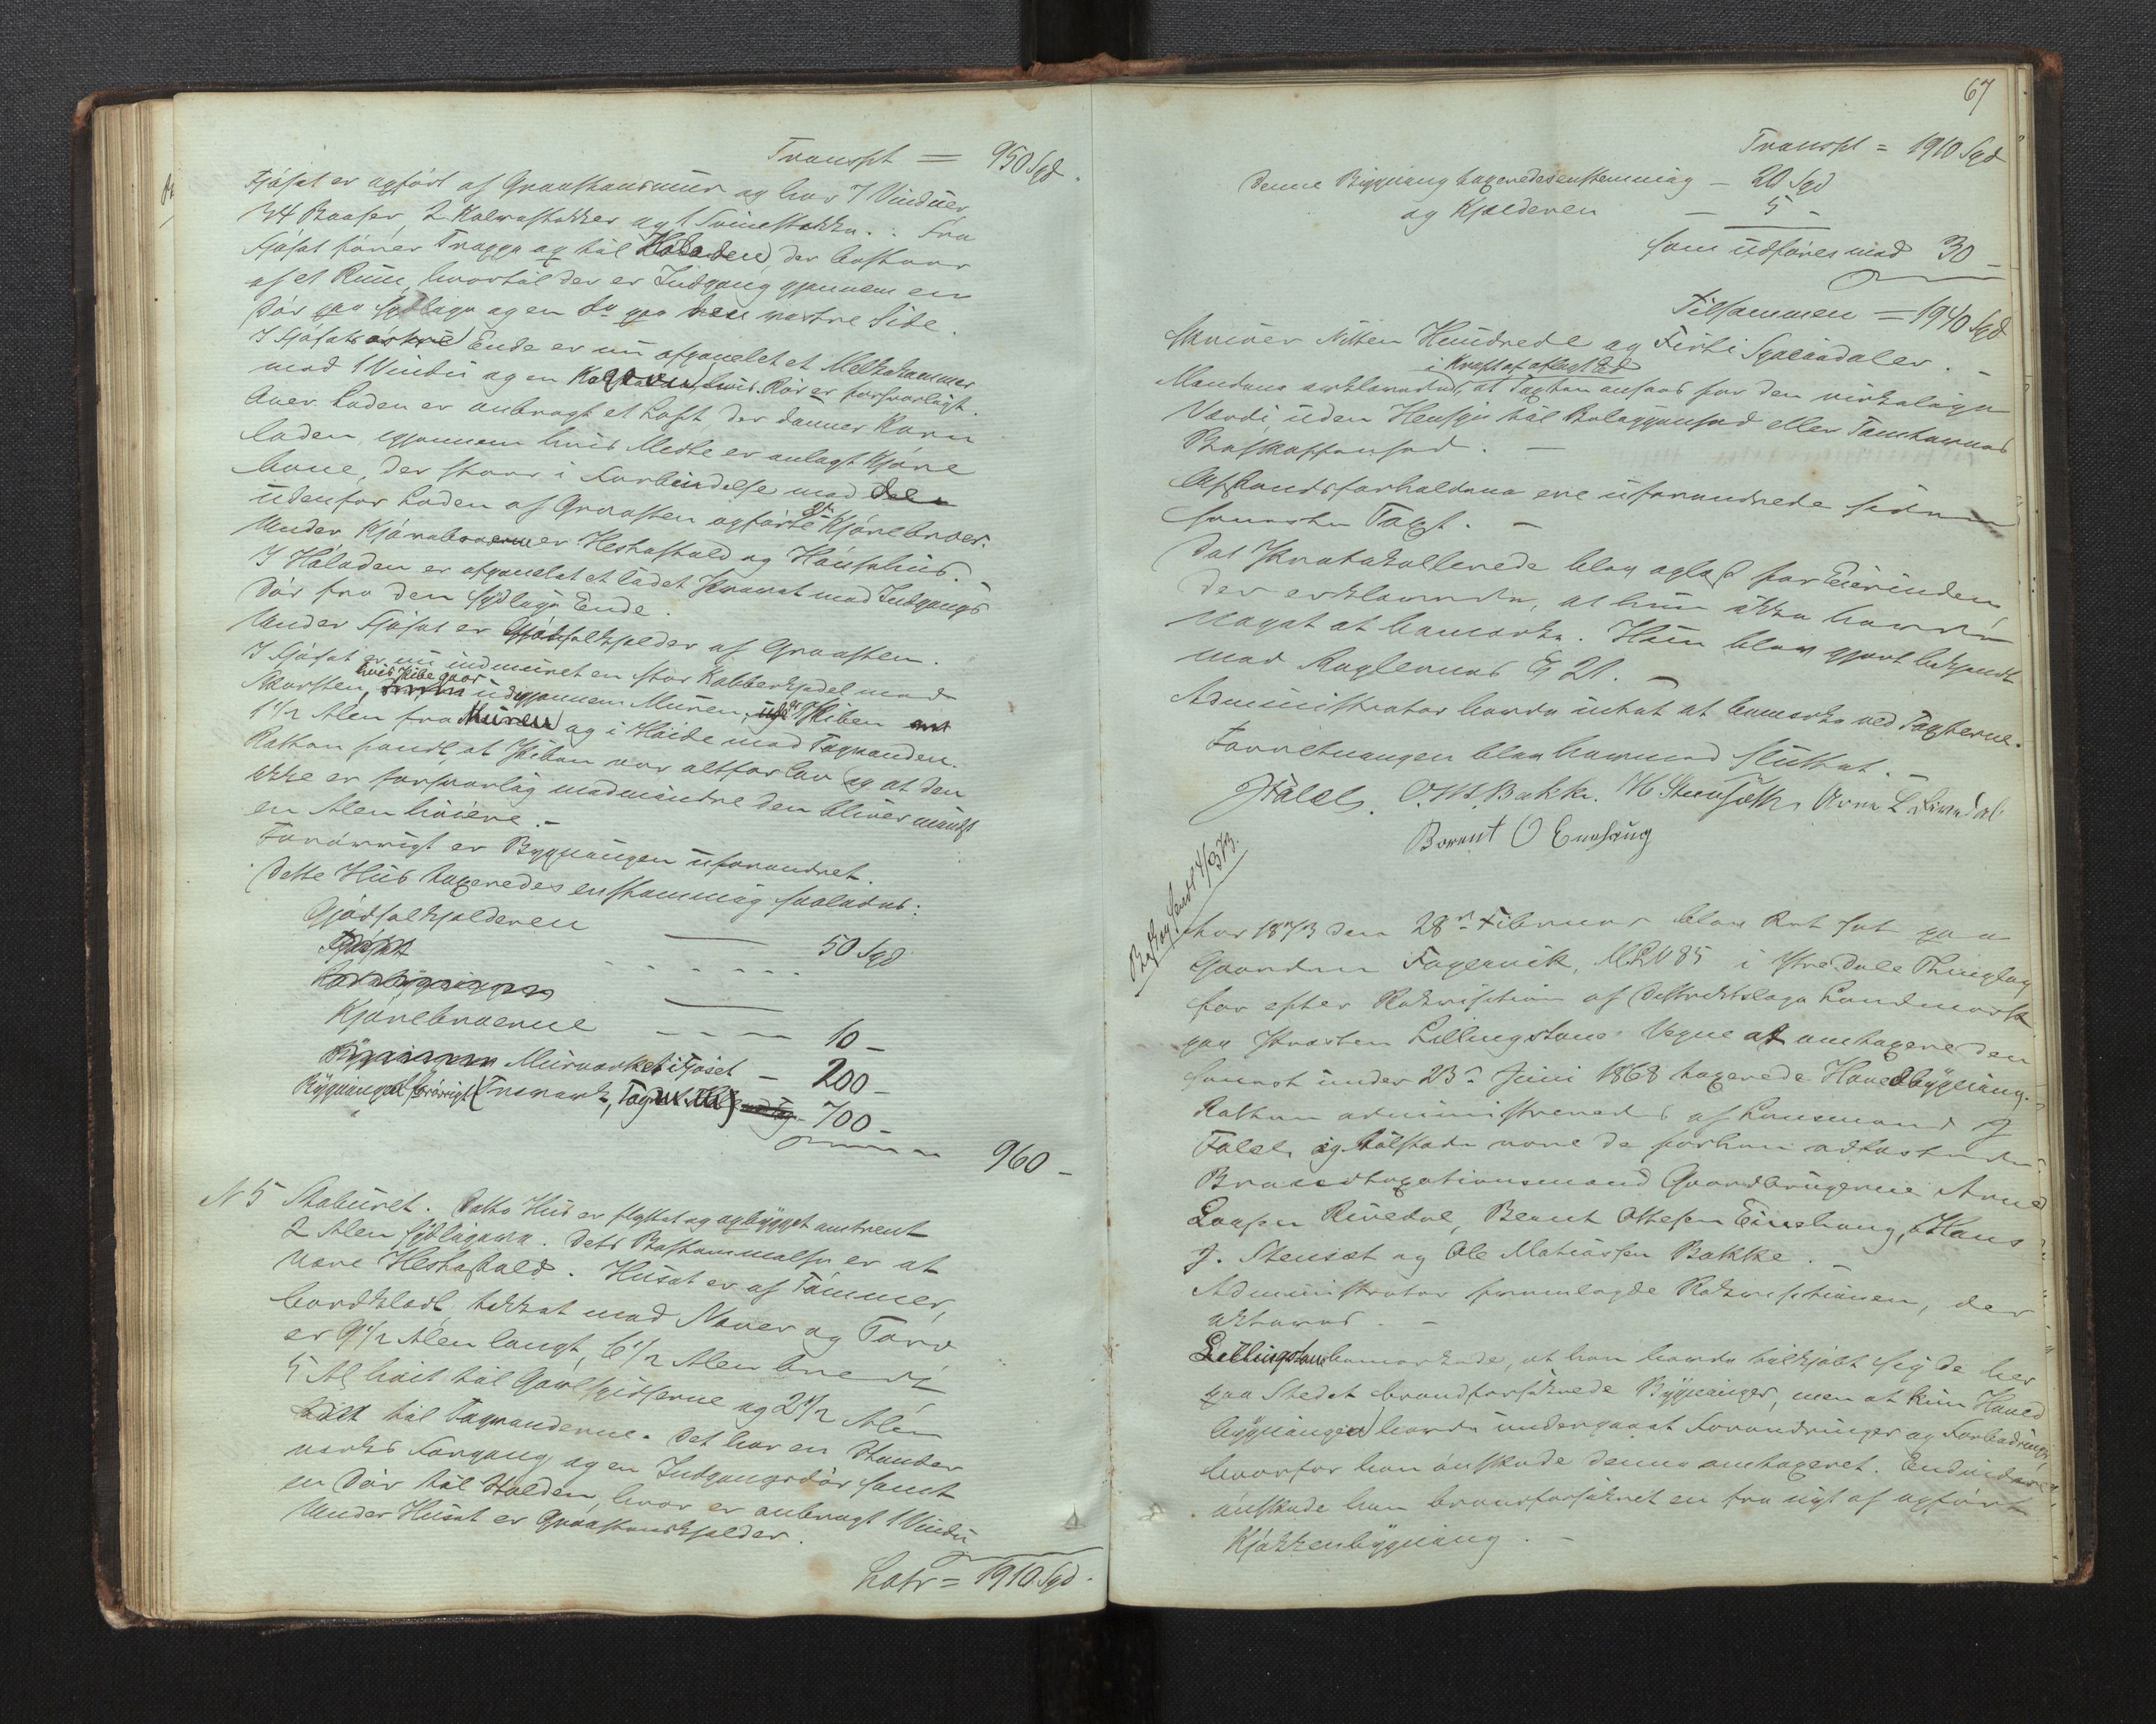 Transpt = 950 Spd.
Fjøset er opført af Graastensmuur og har 7 Vinduer,
34 Baaser, 2 Kalvestakker og 1 Svinestakke. Fra
Fjøset fører Trappe op til Høladen, der bestaar
af et Rum, hvortil der er Indgang gjennem en
Dør paa sydlige og en do paa den vestre Side.
I Fjøsets østre Ende er nu afpanelet et Melkekammer
med 1 Vindu og en hvis Rør er forsvarligt.
Over Laden er anbragt et Loft, der danner Korn
laden, gjennem hvis Midte er anlagt Kjøre
bane, der staar i Forbindelse med de
udenfor Laden af Graasten opførte Kjørebroer.
Under Kjørebroerne er Hestestald og Hønsehus.
I Høladen er afpanelet et lidet med Indgangs
Dør fra den sydlige Ende.
Under Fjøset er Gjødselkjelder af Graasten.
I Fjøset er nu indmuret en stor Kobberkjedel med
Skorsten, hvis Pibe gaar ud gjennem Muren, og Piben
1 1/2 Alen fra Muren og i Høide med Tagranden.
Retten fandt, at Piben var altfor lav og at den
ikke er forsvarlig medmindre den bliver mindst
en Alen høiere.
Forøvrigt er Bygningen uforandret.
Dette Hus taxeredes enstemmig saaledes:
Gjødselkjelderen — 50 Spd
Kjørebroerne — 10 –
Murværket i Fjøset – 200 –
Bygningen forøvrigt (Træværk, Tag – 700 –
960 –
N 5 Staburet. Dette Hus er flyttet og opbygget omtrent
2 Alen sydligere. Dets Bestemmelse er at
være Hestestald. Huset er af Tømmer,
bordklædt, tekket med Næver og Torv
er 9 1/2 Alen langt, 6 1/2 Alen bredt
5 Al høit til Gavlspidserne og 2 1/2 Alen
høit til Tagranderne. Det har en Stander
værks Forgang og en Indgangsdør samt
en Dør til Stalden, hvor er anbragt 1 Vindu
Under Huset er Graastenskjelder.
Latr = 1910 Spd.
67
Transpt = 1910 Spd
Denne Bygning taxeredes enstemmig — 20 Spd
og Kjelderen — 5 –
som udføres med 30 –
Tilsammen = 1940 Spd
skriver Nitten Hundrede og Firti Speciedaler.
i Kraft af aflagt Ed
Mændene erklærede, at Taxten ansees for den virkelige
Værdi, uden Hensyn til Beliggenhed eller Tomternes
Beskaffenhed.
Afstandsforholdene ere uforandrede siden
seneste Taxt.
Det Protokollerede blev oplæst for Eierinden
der erklærede, at hun ikke havde
Noget at bemærke. Hun blev gjort bekjendt
med Reglernes § 21.
Administrator havde intet at bemærke ved Taxterne.
Forretningen blev hermed sluttet.
O. M. Bakke. H Stensæth Arne L
Berent O Enehaug
Beskrev. sendt 4/3 73.
Aar 1873 den 28de Februar blev Ret sat paa
Gaarden Fagervik, MN 85 i Ytredale Thinglag
for efter Rekvisition af Distriktslæge Landmark
paa Presten Lillingstons Vegne at omtaxere den
senest under 23de Juni 1868 taxerede Hovedbygning.
Retten administreredes af Lensmand J
og tilstede vare de forhen edfæstede
Brandtaxationsmænd Gaardbrugerne Arne
Larsen Rivedal, Berent Ottesen Einehaug, Hans
J. Stensæt og Ole Mathiassen Bakke.
Administrator fremlagde Rekvisitionen, der
aktoreres.
Lillingston bemærkede, at han havde tilkjøbt sig de her
paa Stedet brandforsikrede Bygninger, men at kun Hoved
bygningen havde undergaaet Forandringer og Forbedringer
hvorfor han ønskede denne omtaxeret. Endvidere
ønskede han brandforsikret en fra nyt af opført
Kjøkkenbygning.